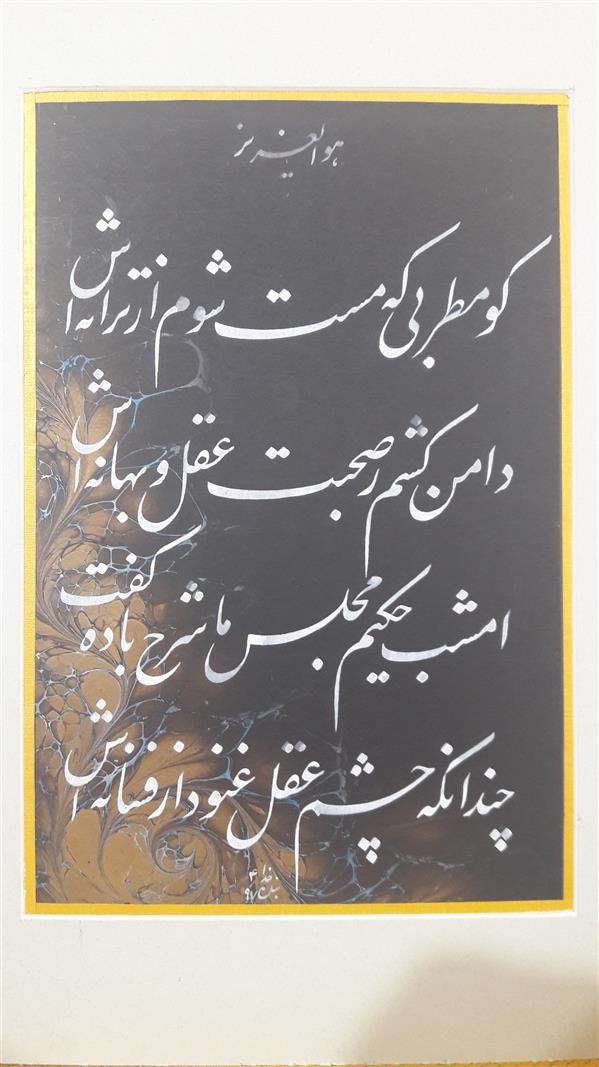 هوالعزیز
کو مطربی که مست شوم از ترانه اش
دامن کشم ز صحبت عقل و بهانه اش
امشب حکیم مجلس ما شرح باده گفت
چندانکه چشم عقل غنود از فسانه اش